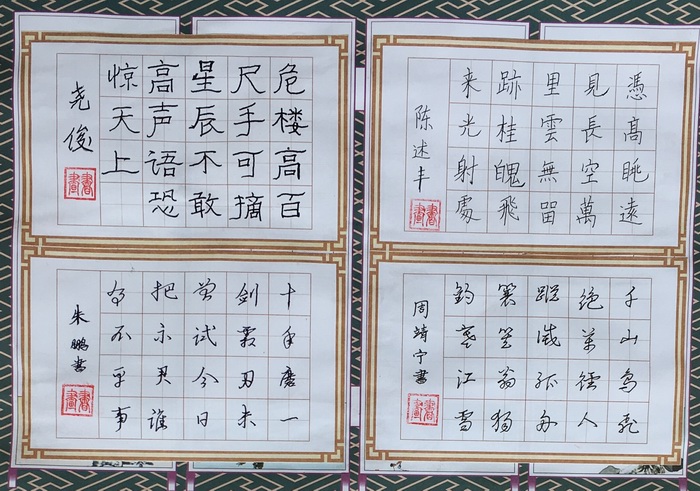 憑高眺遠
見長空萬
里雲無留
跡桂魄飛
来光射處
陈述丰
書畫
危楼高百
尺手可摘
星辰不敢
高声语恐
惊天上
尧俊
書畫
千山鸟飞
绝萬徑人
踪滅孤舟
蓑笠翁独
钓寒江雪
周靖宁書
書畫
十年磨一
剑霜刃未
曾试今日
把示君谁
为不平事
朱鹏書
書畫